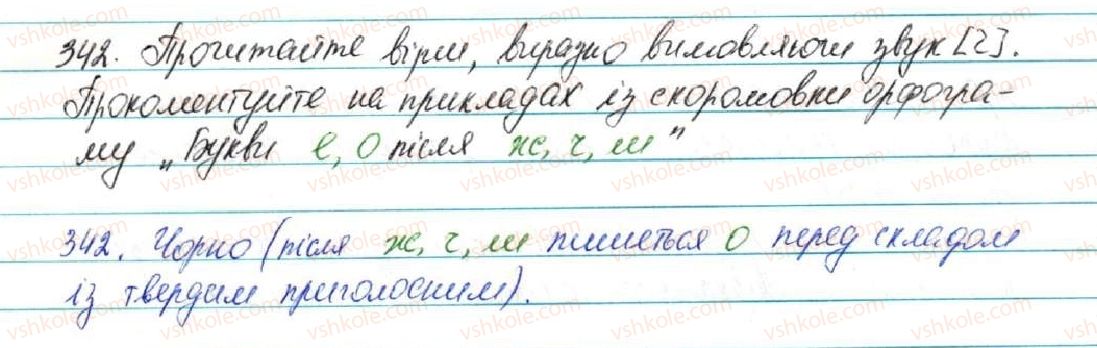 342. Прочитайте вірш, виразно вимовляючи звук [г].
Прокоментуйте на прикладах із скоромовки орфогра-
му „Букви е, о після ж, ч, ш"
342. Чорно (після ж, ч, ш пишеться о перед складом
із твердим приголосним).